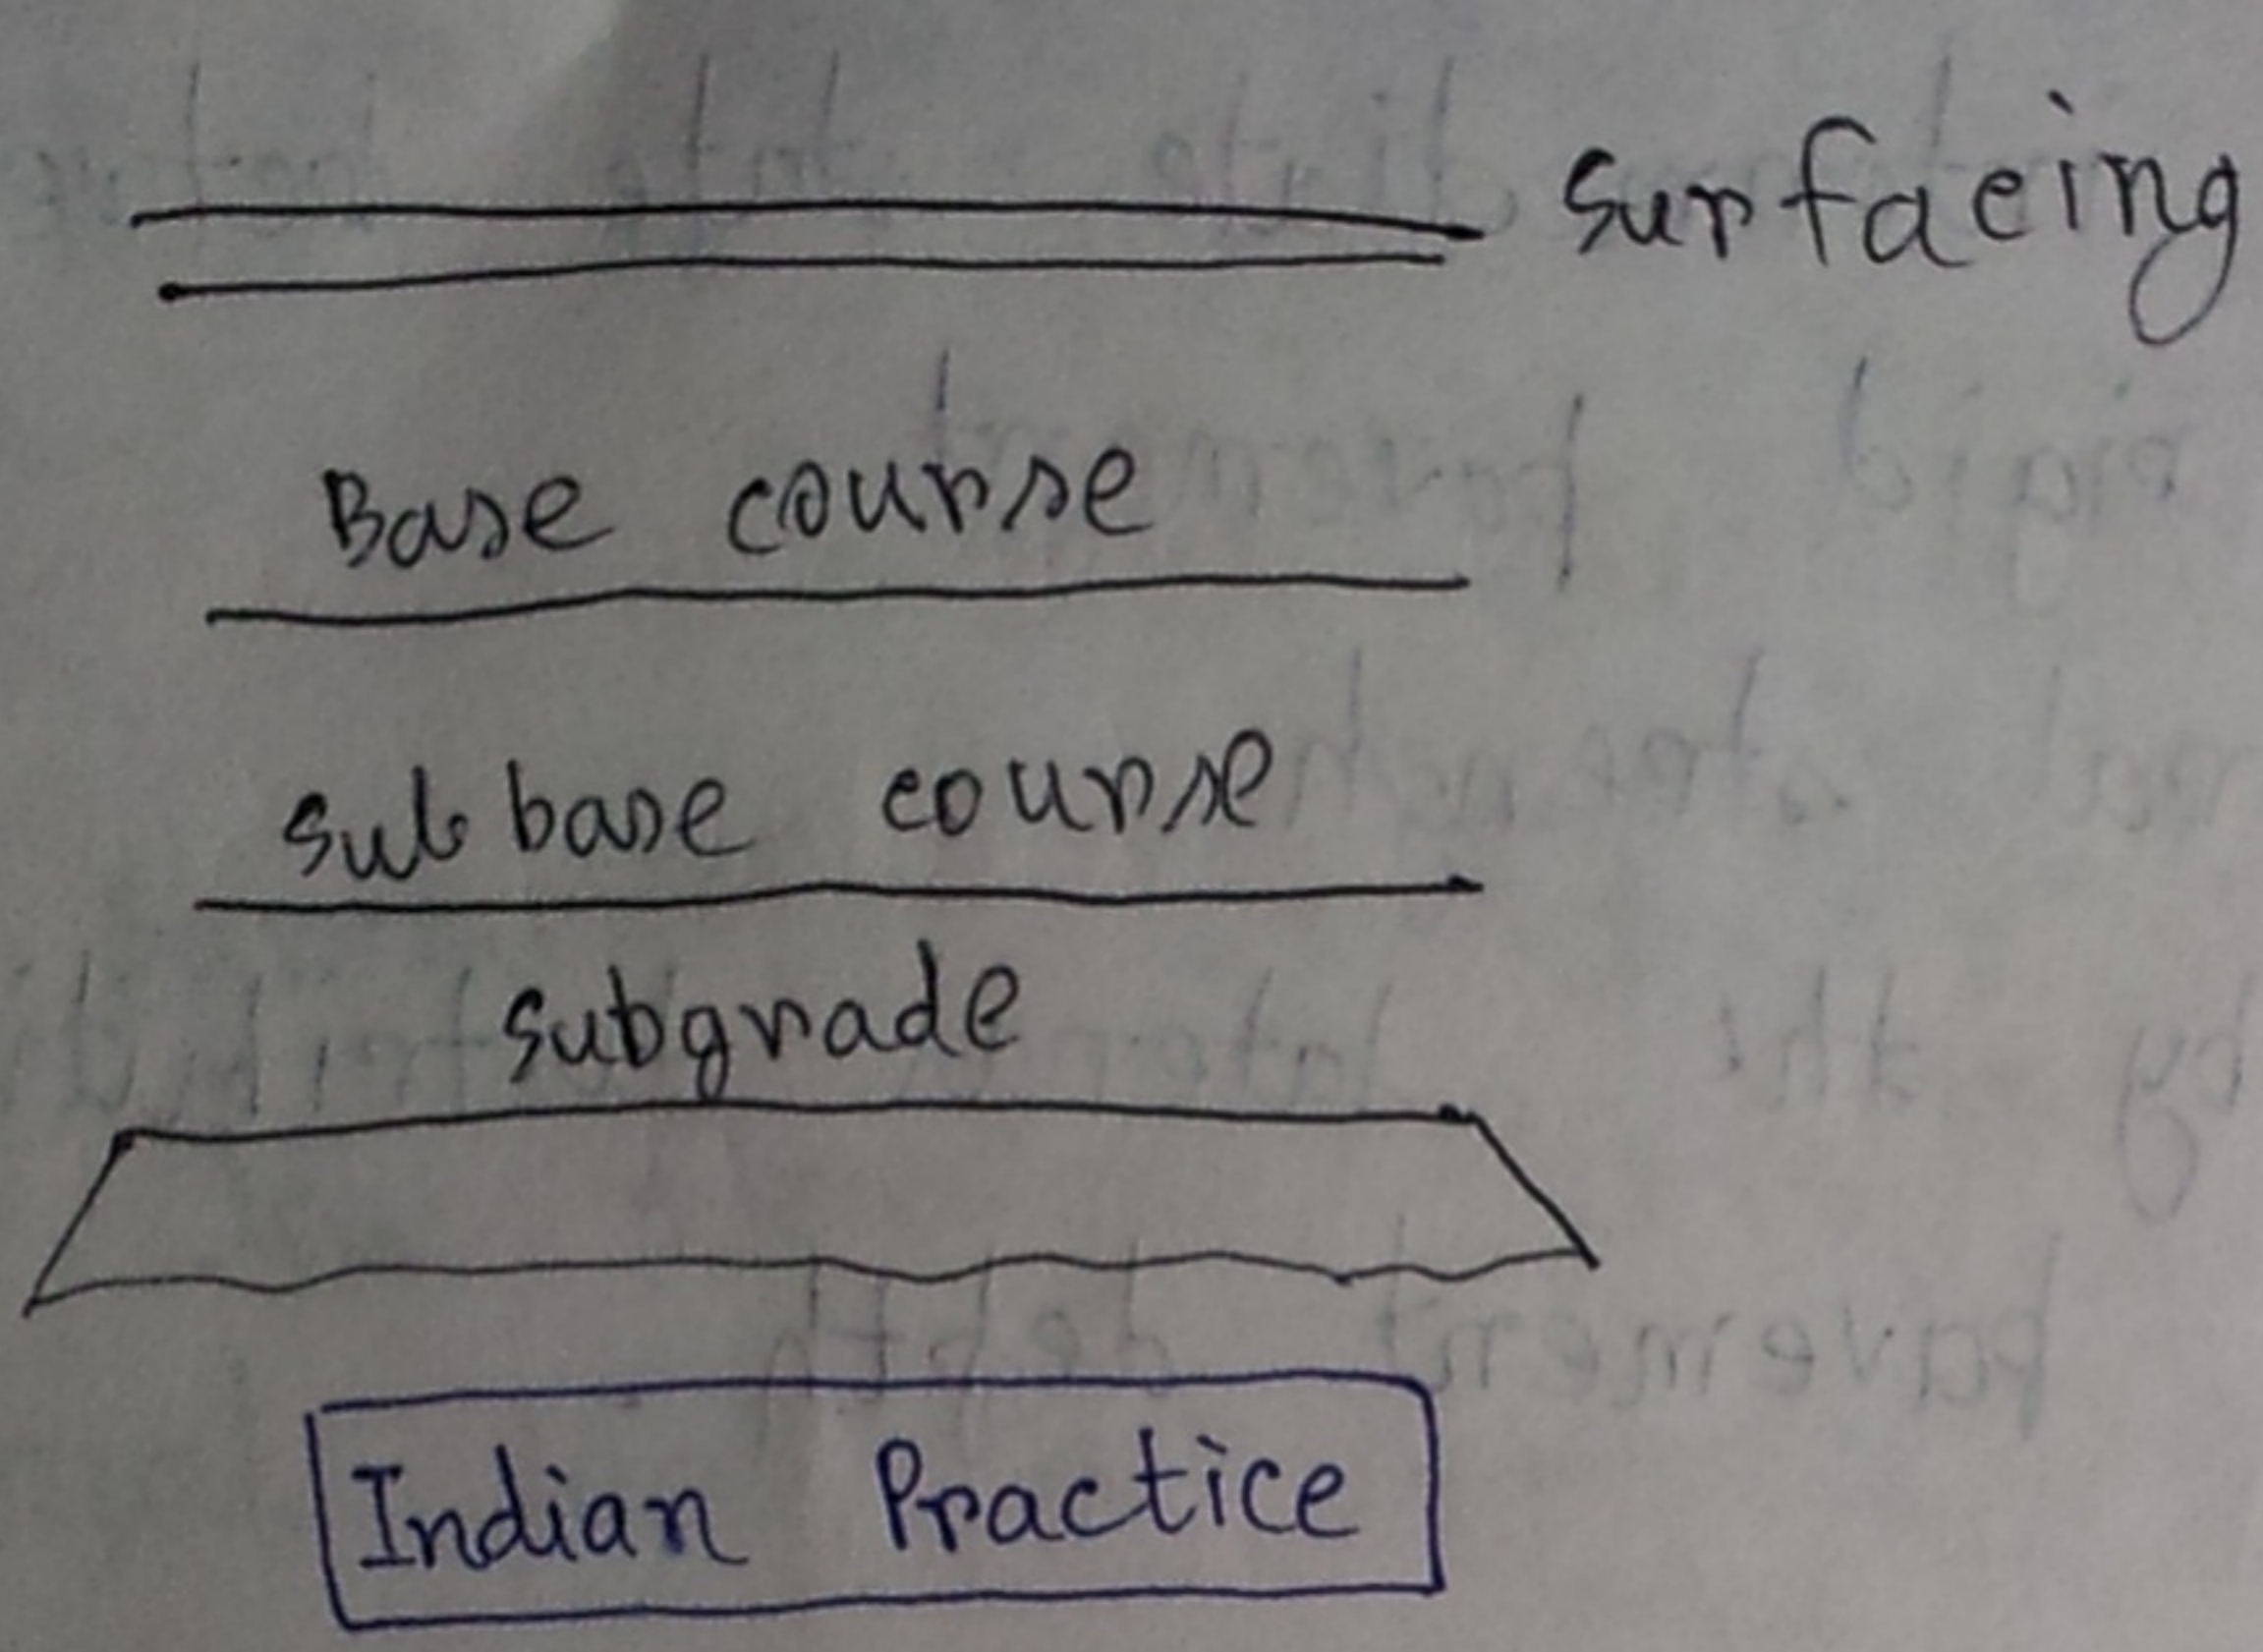 Surfacing
Base course
Subbase course
Subgrade
Indian Practice